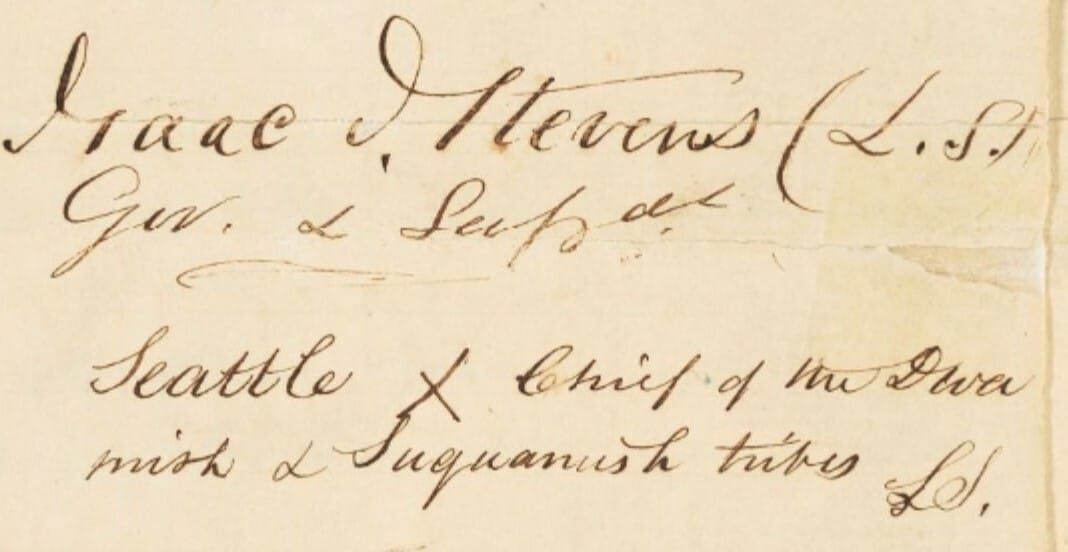 Isaac I. Stevens (L.S.)
Gov. & Supdt.
Seattle X Chief of the Dwa
mish & Suquamish tribes L.S.